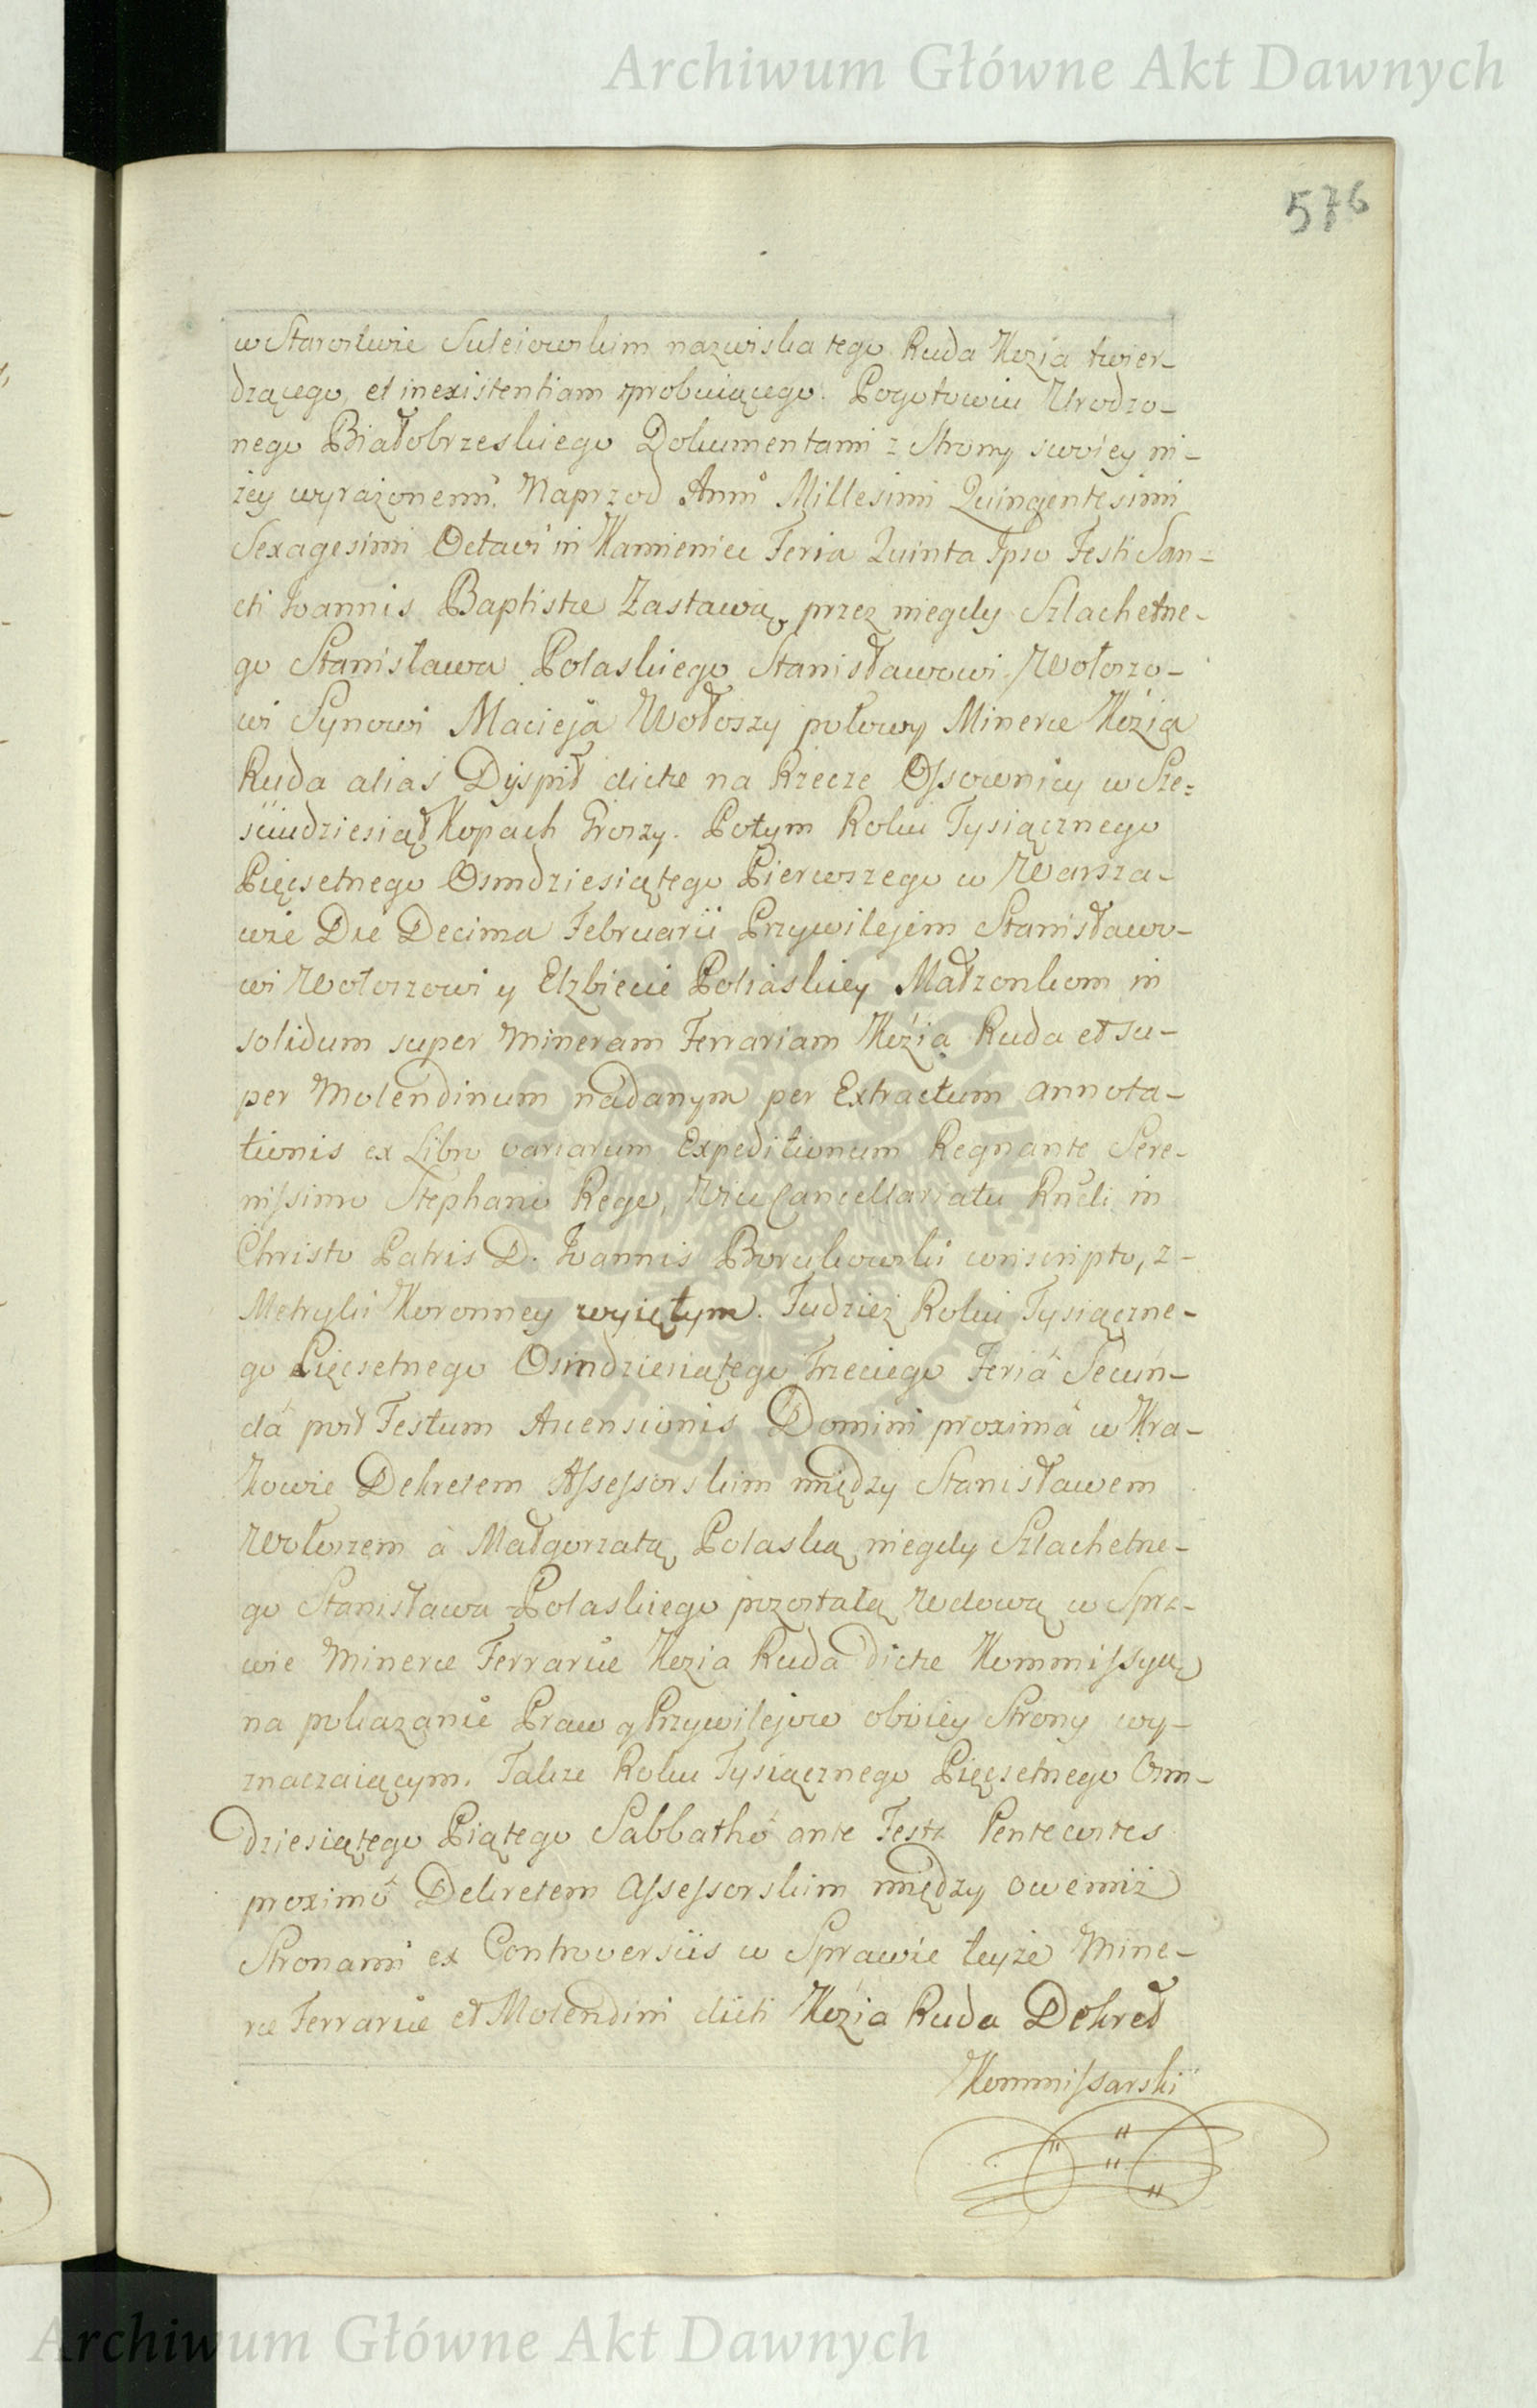 Archiwum Główne Akt Dawnych
576
w Starostwie Suleiowskim nazwiska tego Ruda Kozia twier-
dzącego, et inexistentiam probuiącego. Pogotowiu Urodzo-
nego Białobrzeskiego Dokumentami z Strony swoiey ni-
zey wyrazonemi. Naprzod Anni Millesimi Quingentesimi
Sexagesimi Octavi in Kamieniec Feria Quinta Ipso Festi San-
cti Joannis Baptistæ Zastawą przez niegdy Szlachetne-
go Stanisława Polaskiego Stanisławowi Wołoszo-
wi Synowi Macieja Wołoszy połowy Mineræ Kozia
Ruda alias Dyspił dictæ na Rzecze Ossownicy w Sze-
sciudziesiąt Kopach Groszy. Potym Roku Tysiącznego
Pięcsetnego Osmdziesiątego Pierwszego w Warsza-
wie Die Decima Februarii Przywilejem Stanisławo-
wi Wołoszowi y Elzbiecie Poliaskiey Małzonkom in
solidum super Mineram Ferrariam Kozia Ruda et su-
per Molendinum nadanym per Extractum annota-
tionis ex Libro variarum Expeditionum Regnante Sere-
nissimo Stephano Rege, Vice Cancellariatu Rndi in
Christo Patris D. Joannis Borukowski conscripto, z-
Metryki Koronney wyiętym. Tudziez Roku Tysiączne-
go Pięcsetnego Osmdziesiątego Trzeciego Feriâ Secun-
dâ post Festum Ascensionis Domini proximâ w Kra-
kowie Dekretem Assessorskim między Stanisławem
Wołoszem à Małgorzatą Polaską niegdy Szlachetne-
go Stanisława Polaskiego pozostałą Wdową w Spra-
wie Mineræ Ferrariæ Kozia Ruda dictæ Kommissyą
na pokazanie Praw y Przywilejow oboiey Strony wy-
znaczaiącym. Takze Roku Tysiącznego Pięcsetnego Osm-
dziesiątego Piątego Sabbatho ante Festa Pentecostes
proximô Dekretem Assessorskim między owemiż
Stronami ex Controversiis w Sprawie teyże Mine-
ræ Ferrariæ et Molendini dicti Kozia Ruda Dekret
Kommissarski
Archiwum Główne Akt Dawnych